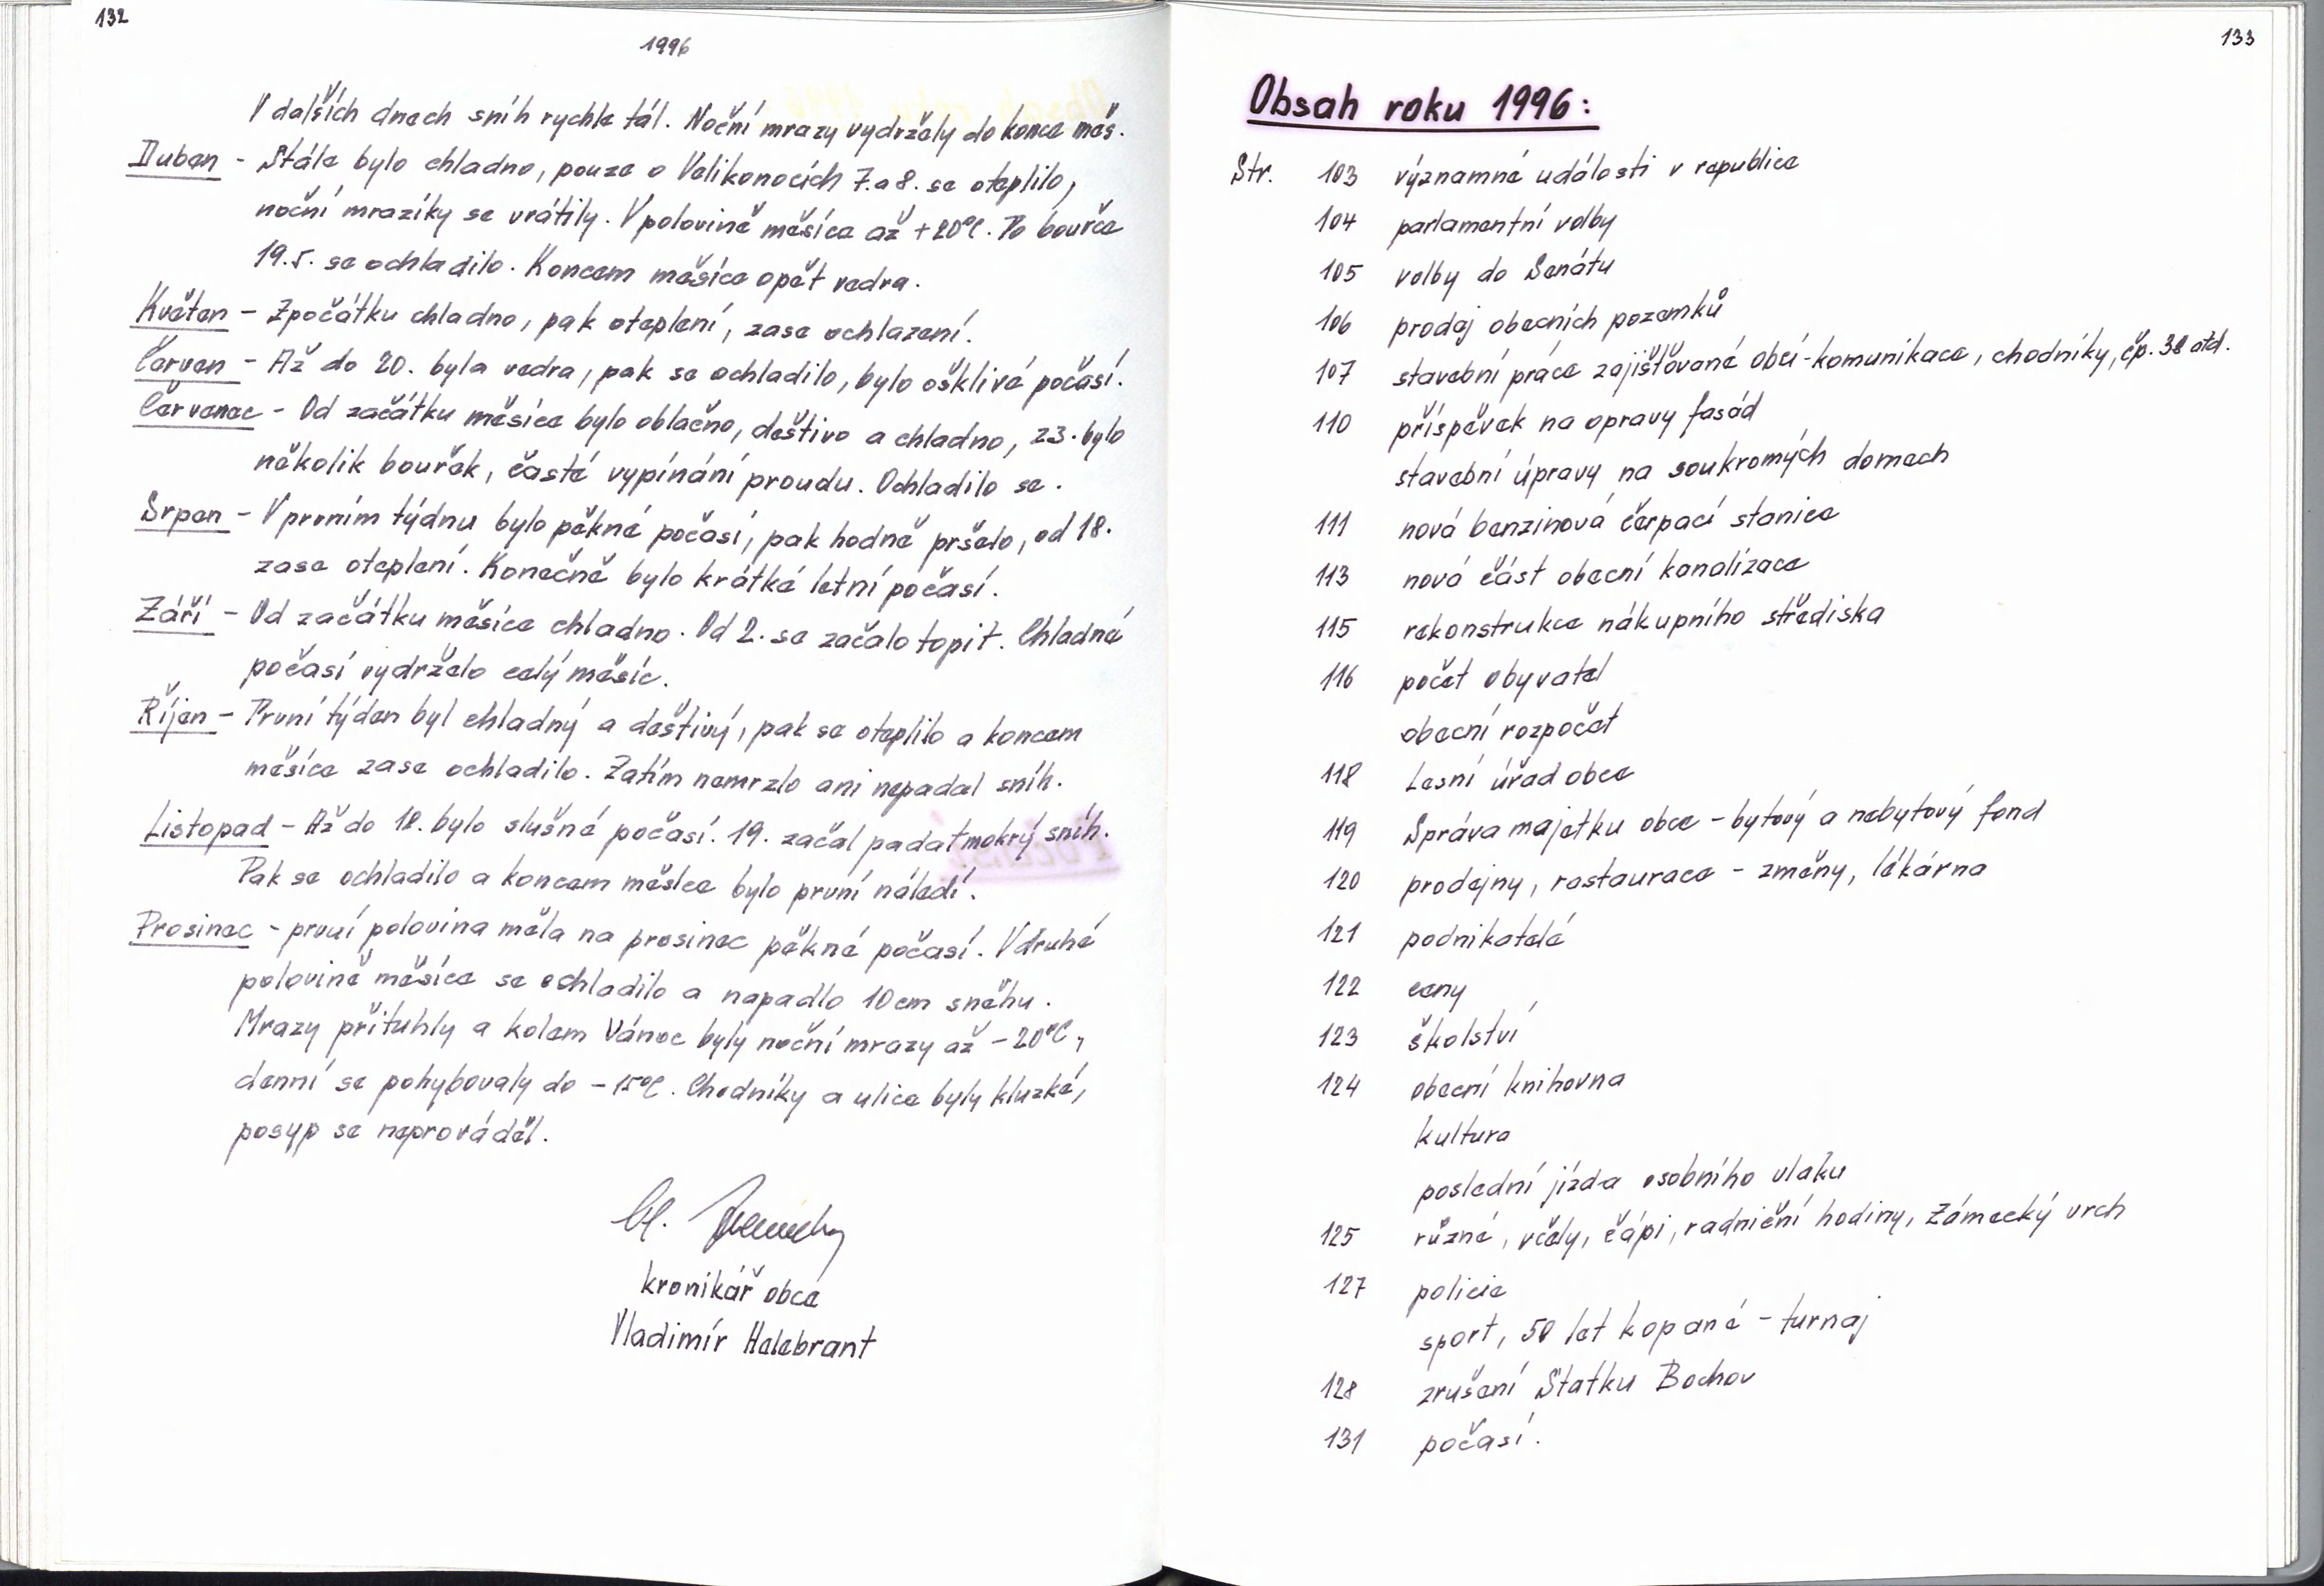 132
1996
V dalších dnech sníh rychle tál. Noční mrazy vydržely do konce měs.
Duben - Stále bylo chladno, pouze o Velikonocích 7. a 8. se oteplilo,
noční mrazíky se vrátily. V polovině měsíce až +20°C. Po bouřce
19.5. se ochladilo. Koncem měsíce opět vedra.
Květen - Zpočátku chladno, pak oteplení, zase ochlazení.
Červen - Až do 20. byla vedra, pak se ochladilo, bylo ošklivé počasí.
Červenec - Od začátku měsíce bylo oblačno, deštivo a chladno, 23. bylo
několik bouřek, časté vypínání proudu. Ochladilo se.
Srpen - V prvním týdnu bylo pěkné počasí, pak hodně pršelo, od 18.
zase oteplení. Konečně bylo krátké letní počasí.
Září - Od začátku měsíce chladno. Od 2. se začalo topit. Chladné
počasí vydrželo celý měsíc.
Říjen - První týden byl chladný a deštivý, pak se oteplilo a koncem
měsíce zase ochladilo. Zatím nemrzlo ani nepadal sníh.
Listopad - Až do 18. bylo slušné počasí. 19. začal padat mokrý sníh.
Pak se ochladilo a koncem měsíce bylo první náledí.
Prosinec - první polovina měla na prosinec pěkné počasí. V druhé
polovině měsíce se ochladilo a napadlo 10 cm sněhu.
Mrazy přituhly a kolem Vánoc byly noční mrazy až -20°C,
denní se pohybovaly do -15°C. Chodníky a ulice byly kluzké,
posyp se neprováděl.
kronikář obce
Vladimír Helebrant
133
Obsah roku 1996:
Str. 103 významné události v republice
104 parlamentní volby
105 volby do Senátu
106 prodej obecních pozemků
107 stavební práce zajišťované obcí - komunikace, chodníky, čp. 38 atd.
110 příspěvek na opravy fasád
stavební úpravy na soukromých domech
111 nová benzinová čerpací stanice
113 nová část obecní kanalizace
115 rekonstrukce nákupního střediska
116 počet obyvatel
obecní rozpočet
118 Lesní úřad obce
119 Správa majetku obce - bytový a nebytový fond
120 prodejny, restaurace - změny, lékárna
121 podnikatelé
122 ceny
123 školství
124 obecní knihovna
kultura
poslední jízda osobního vlaku
125 různé, včely, čápi, radniční hodiny, Zámecký vrch
127 policie
sport, 50 let kopané - turnaj
128 zrušení Statku Bochov
131 počasí.